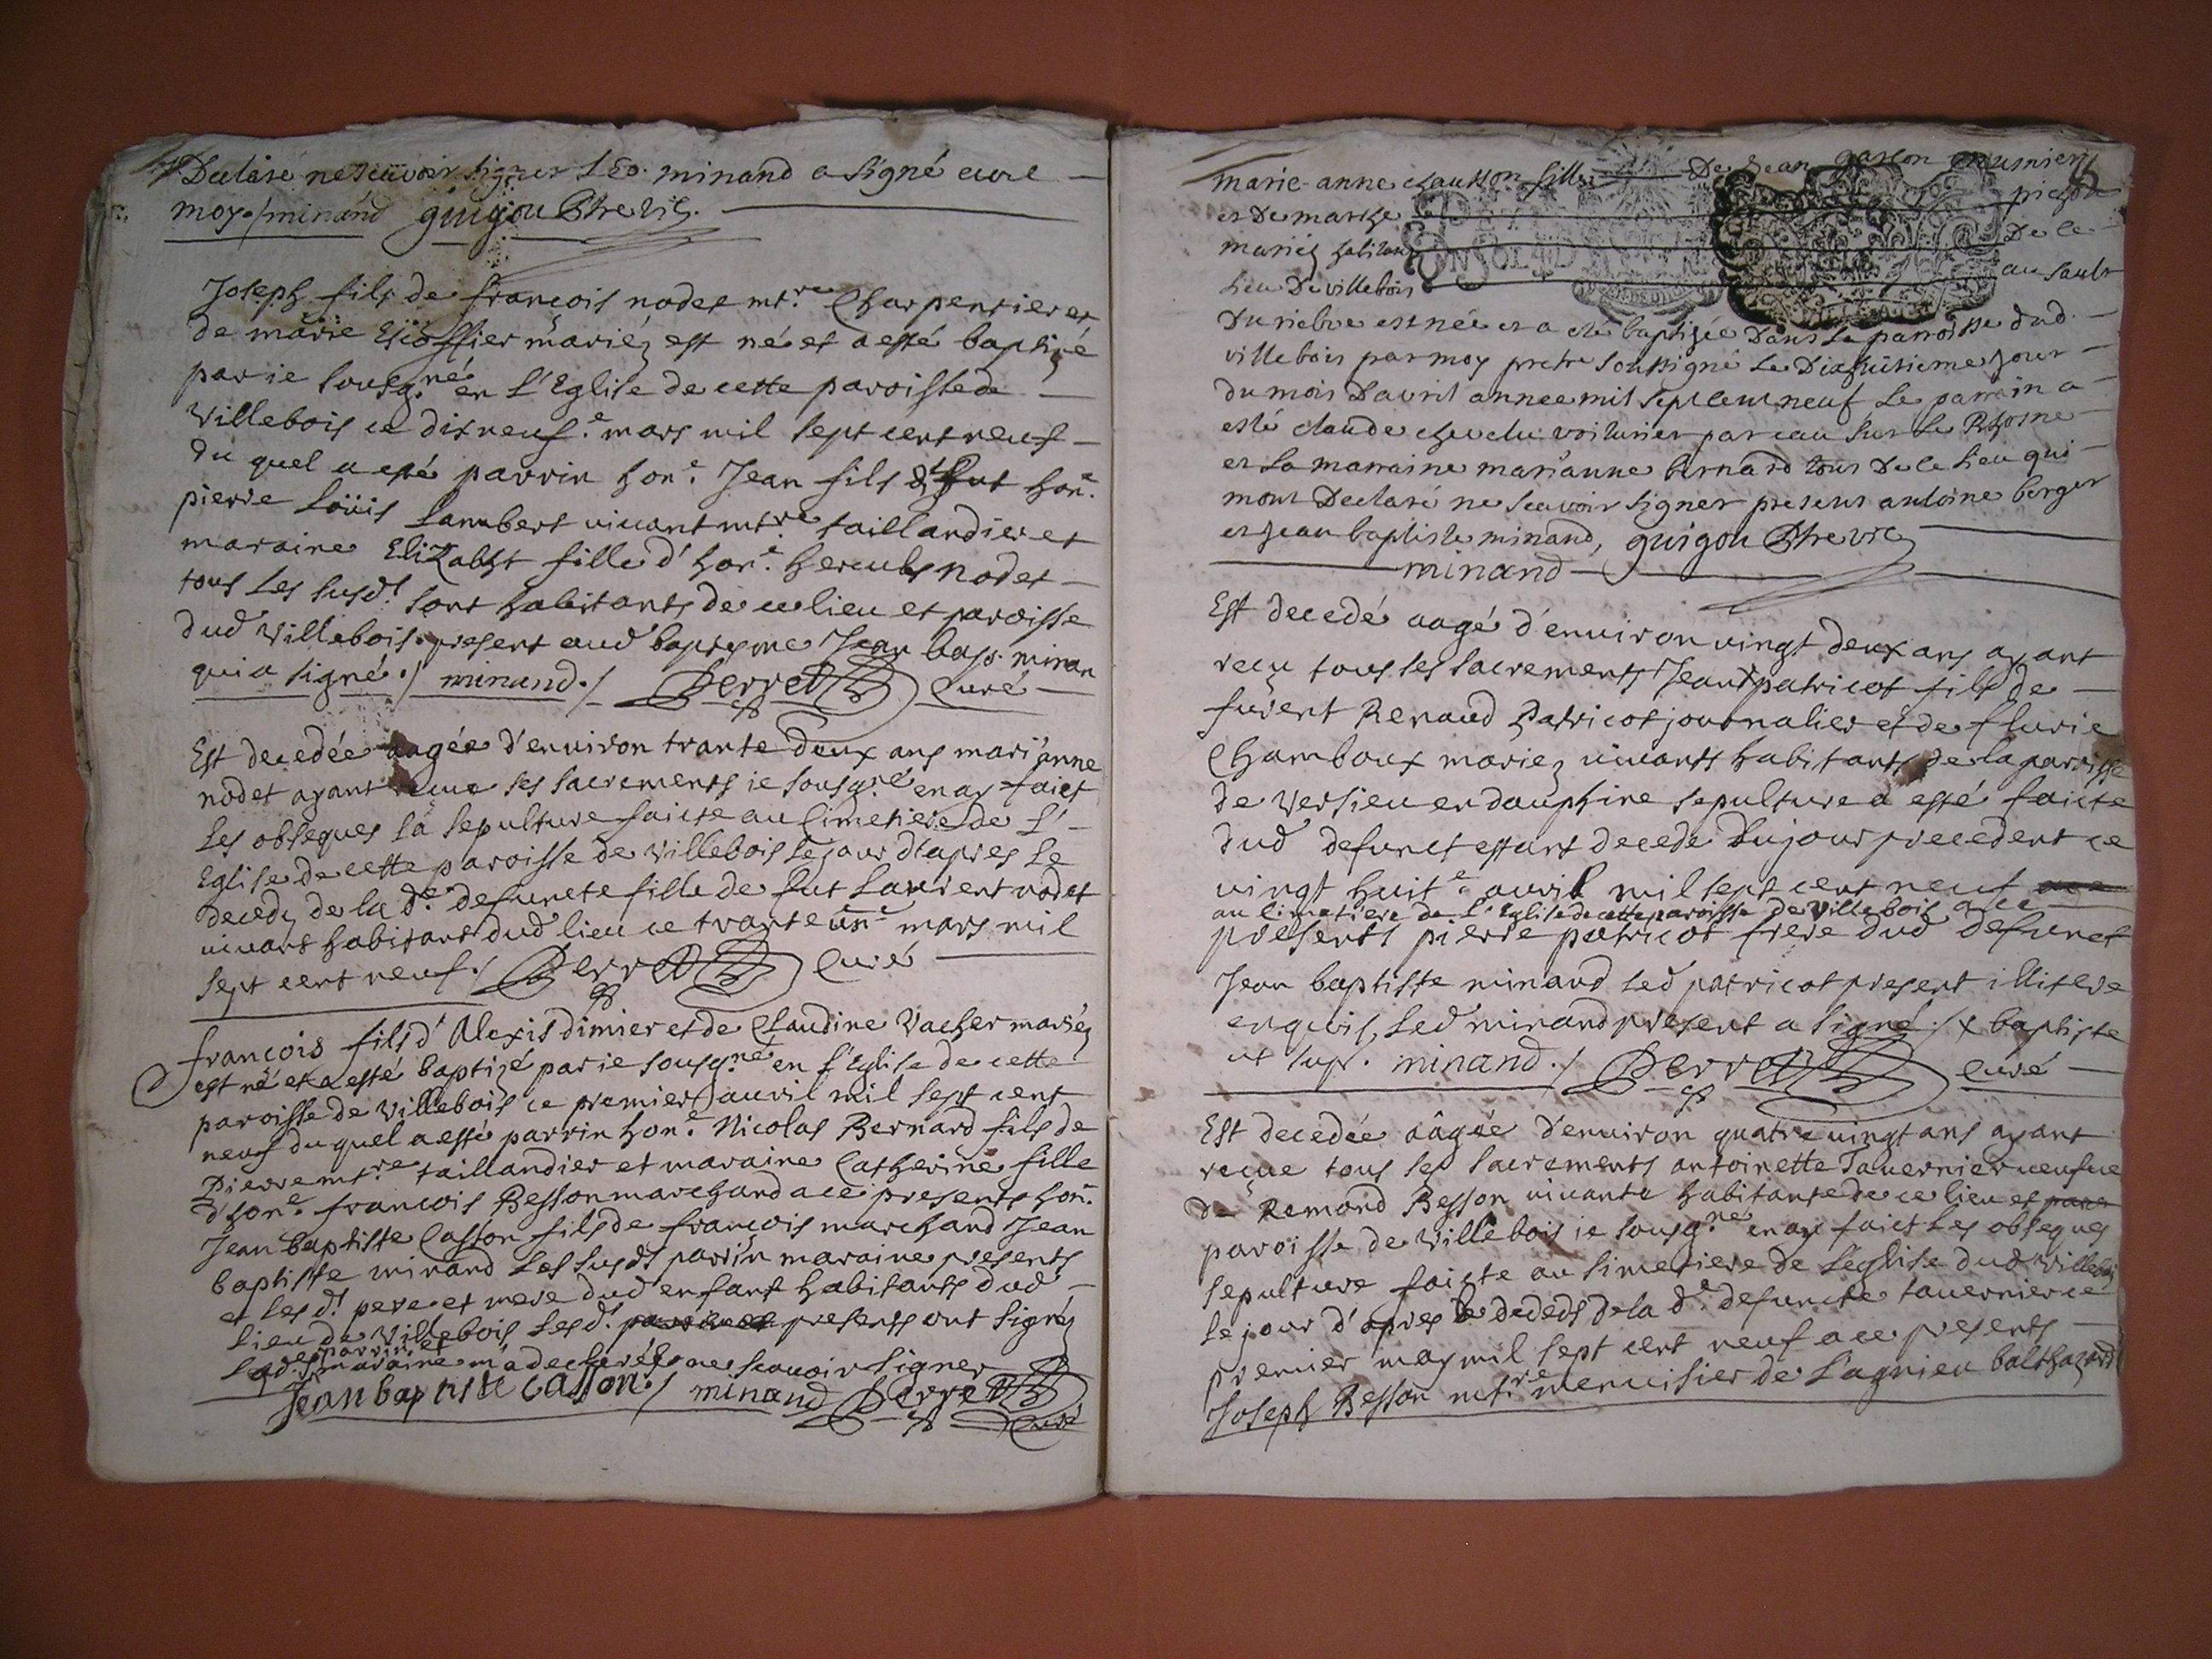 Declaré ne sçavoir signer led. minand a signé avec
moy./ minand guigou Ptre vic.
Joseph fils de françois nodet mt.re Charpentier et
de marie Escoffier mariéz est né et a esté baptizé
par ie sousg.né en l'Eglise de cette paroisse de
Villebois ce dixneuf.e mars mil sept cent neuf
du quel a esté parrin hon.e Jean fils de fut hon.e
pierre Loüis Lambert vivant mt.re taillandier et
maraine Elizabht fille d'hon.e hercules nodet
tous les susd.ts sont habitants de ce lieu et paroisse
dud Villebois. present aud baptesme Jean bap. minan
qui a signé./ minand./ Perret Curé
Est decedée aagée d'environ trante deux ans mari'anne
nodet ayant reçue ses sacrements ie sousg.né en ay faict
les obseques sa sepulture faicte au Cimetiere de l'
Eglise de cette paroisse de Villebois le jour d'apres le
decedz de la d.e defuncte fille de fut Laurent nodet
vivant habitant dud lieu ce trante un.e mars mil
sept cent neuf./ Perret Curé
françois fils d'Alexis dimier et de Claudine Vacher mariéz
est né et a esté baptizé par ie sousg.né en l'Eglise de cette
paroisse de Villebois ce premier avril mil sept cent
neuf du quel a esté parrin hon.e Nicolas Bernard fils de
Pierre mt.re taillandier et maraine Catherine fille
d'hon.e françois Besson marchand a ce presents hon.e
Jean baptiste Casson fils de françois marchand Jean
baptiste minand les susd.ts parrin maraine presents
et les d.ts pere et mere dud enfant habitants dud
lieu de Villebois les d.ts presents ont signéz
parrin et
maraine m'a declaréz ne scavoir signer
Jean baptiste Casson./ minand Perret
Curé
marie-anne chausson fille De Jean gascon musnier
et De marthe pichon
mariez habitans De ce
lieu De villebois au sault
Du rhosne est née et a esté baptizée Dans la parroisse dud.
villebois par moy pretre soussigné Le Dixhuitieme jour
du mois D'avril annee mil sept cent neuf Le parrain a
esté claude chevelu voiturier par eau sur Le Rhosne
et La marraine mari'anne bernard tous De ce Lieu qui
m'ont Declaré ne scavoir signer presens antoine berger
et jean baptiste minand, guigou Ptre vic
minand
Est decedé aagé d'environ vingt deux ans ayant
reçu tous ses sacrements Jean x patricot fils de
furent Renaud Patricot journalier et de flurie
Chamboux mariez vivants habitants de la paroisse
de Versieu en dauphine sepulture a esté faicte
dud defunct estant decede du jour precedent ce
vingt huit.e avril mil sept cent neuf
au Cimetiere de l'Eglise de cette paroisse de Villebois a ce
presents pierre patricot frere dud defunct
Jean baptiste minand led patricot present illitere
enquis, led minand present a signé./ x baptiste
ut sup. minand./ Perret Curé
Est decedée aagée d'environ quatre vingt ans ayant
reçue tous ses sacrements antoinette Tavernier veufve
de Remond Besson vivante habitante de ce lieu et
paroisse de Villebois ie sousg.né en ay faict les obseques
sepulture faicte au simetiere de l'eglise dud Villeboi
le jour d'apres le dedéds de la d.e defuncte tavernier ce
premier may mil sept cent neuf a ce presents
Joseph Besson mt.re menuisier de Lagnieu balthazard